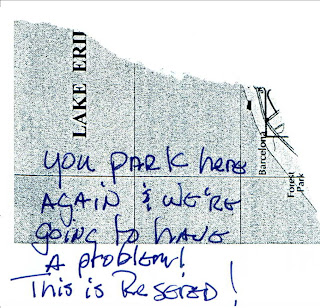 LAKE ERIE
Barcelona
Forest
Park
you PARK here
AGAIN & WE'RE
going to HAVE
A problem!
This is ReSERED!